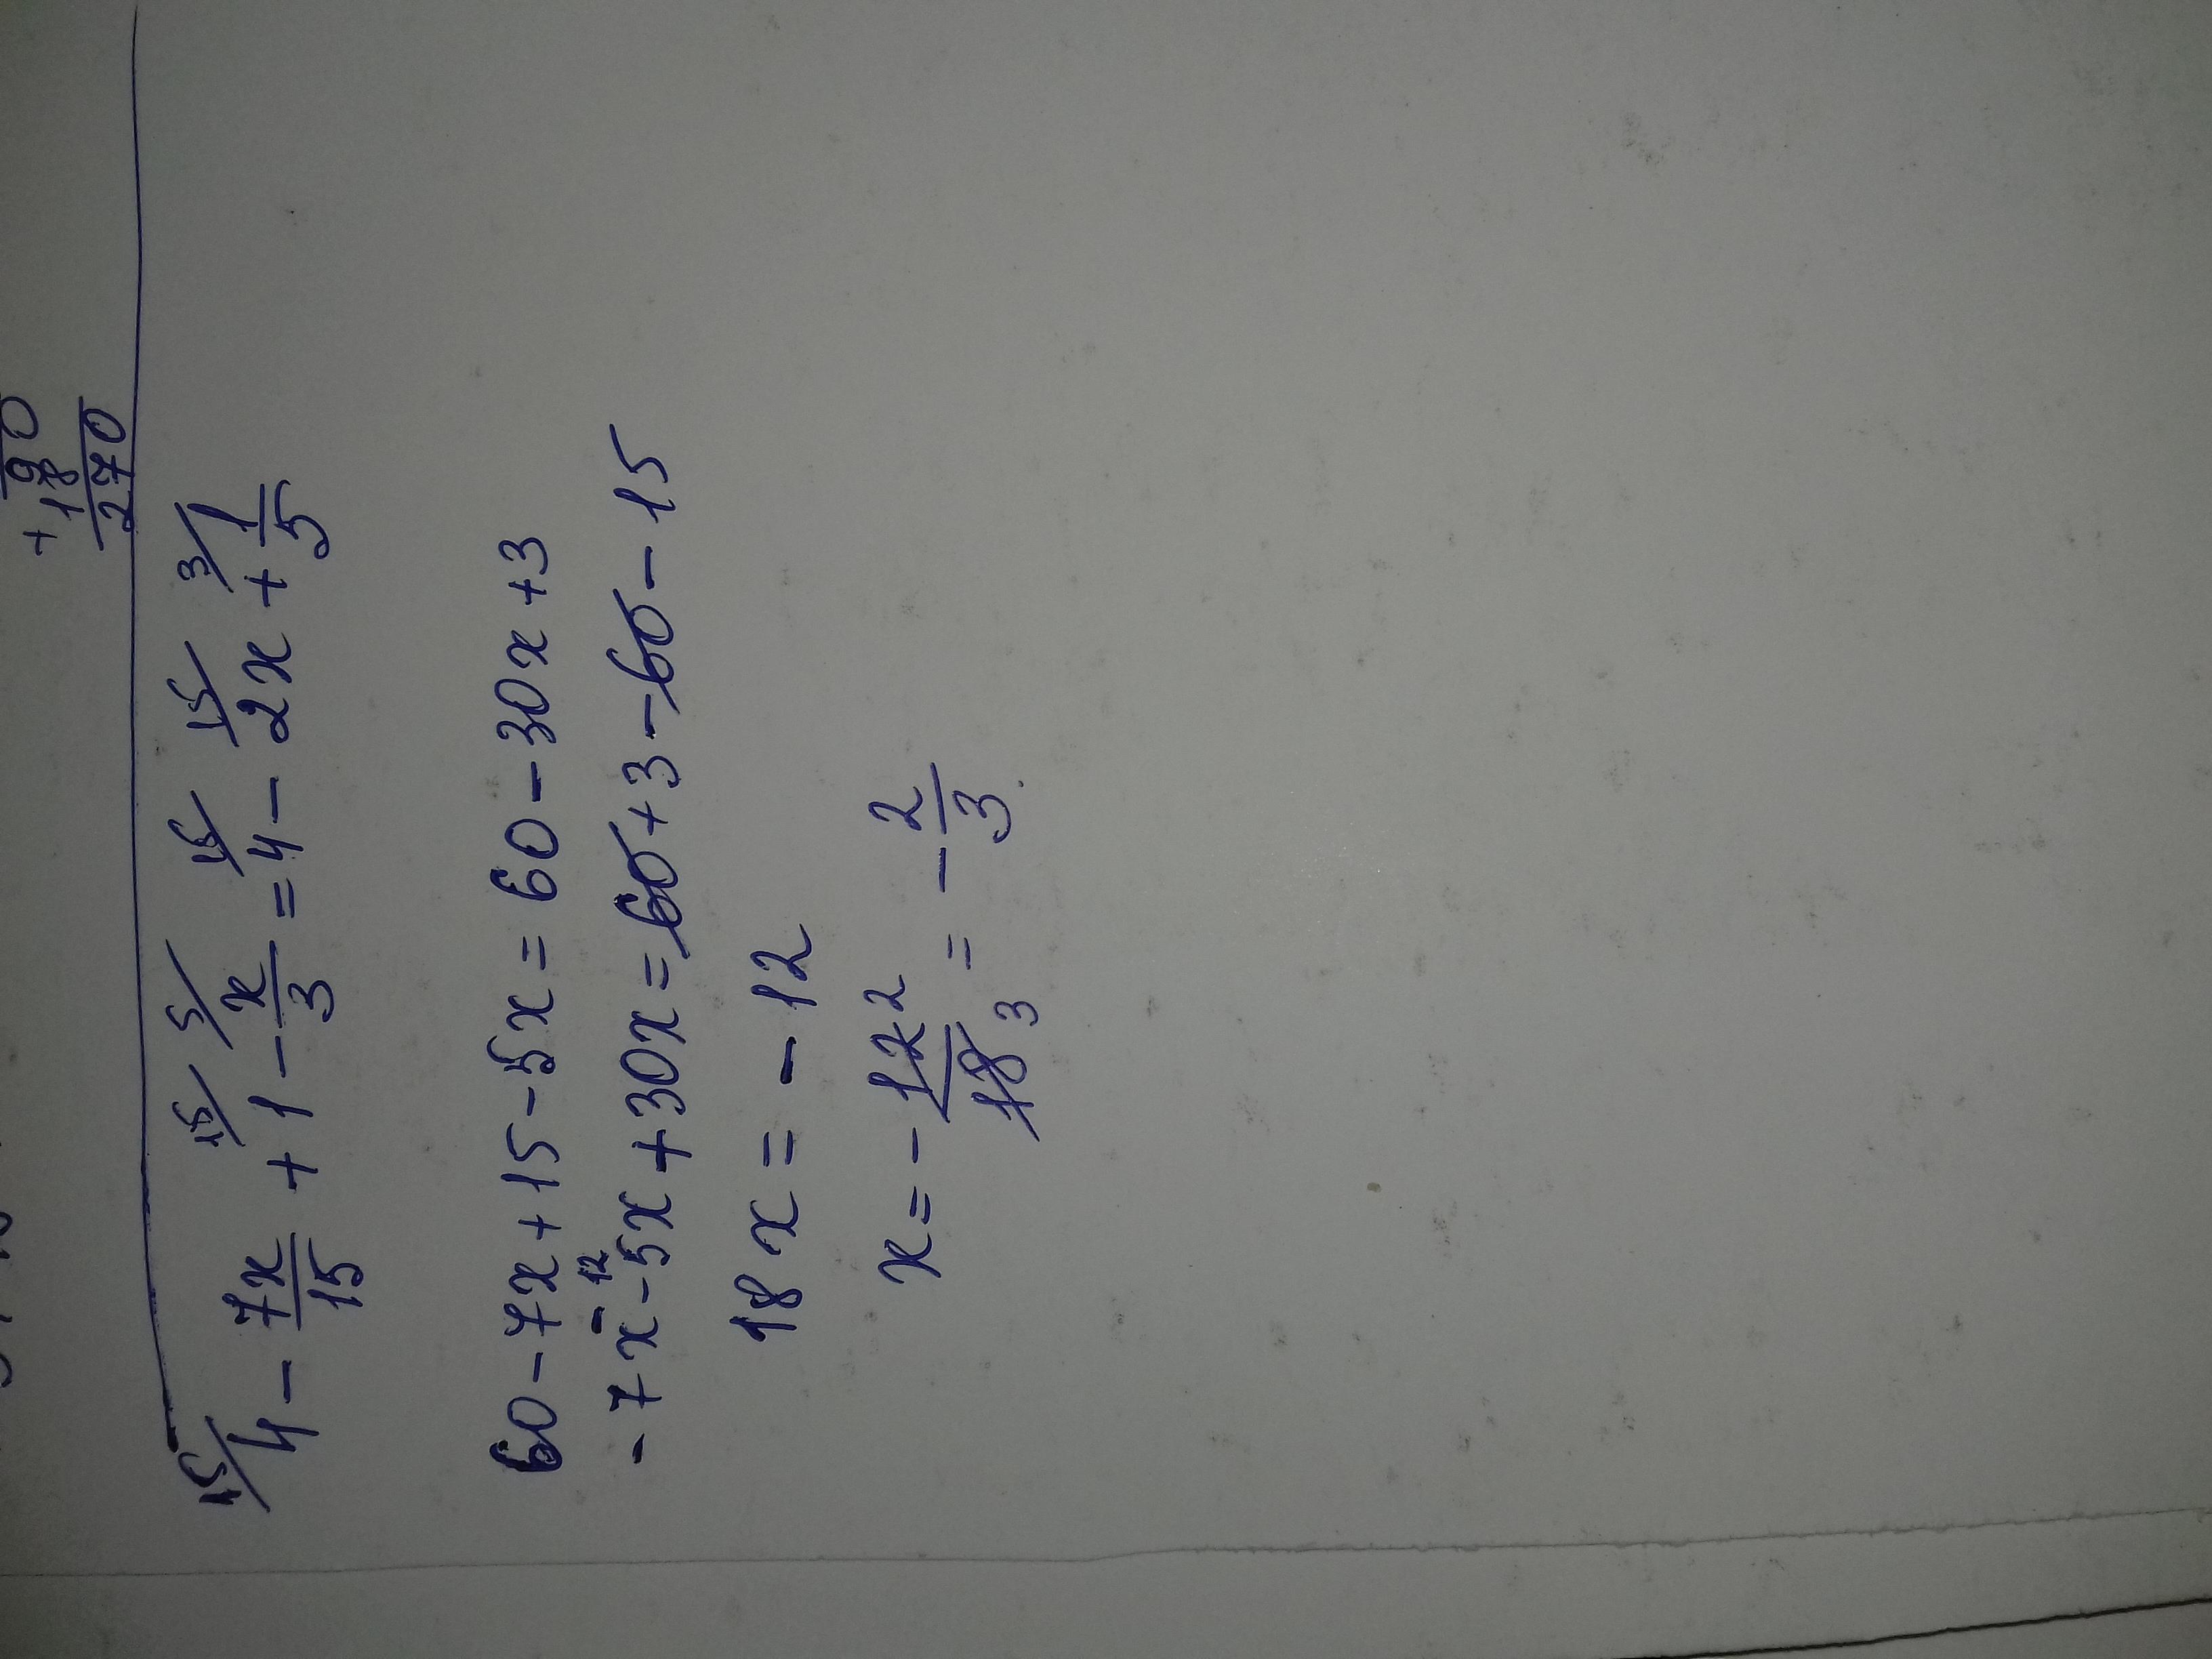 90
+ 18
270
15/ 15/ 5/ 15/ 15/ 3/
4 - 7x/15 + 1 - x/3 = 4 - 2x + 1/5
60 - 7x + 15 - 5x = 60 - 30x + 3
-12
- 7x - 5x + 30x = 60 + 3 - 60 - 15
18x = - 12
x = - 12 2/18 3 = - 2/3